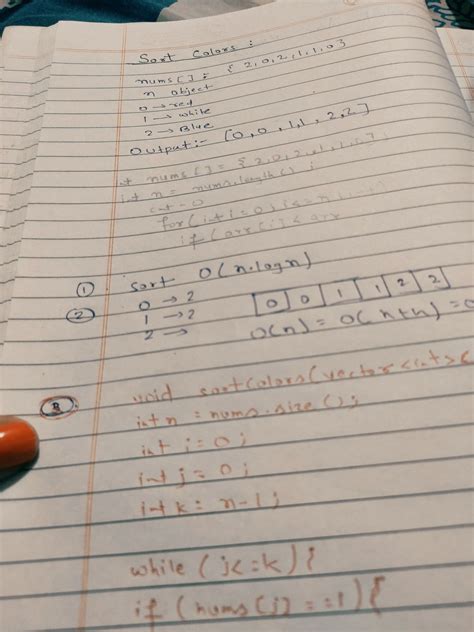 Sort Colors :
nums[] : { 2,0,2,1,1,0}
n object
0 → red
1 → while
2 → Blue
Output:- [0,0,1,1,2,2]
int nums[] = {2,0,2,1,1,
int n = nums.length();
cnt = 0
for(int i=0;
if (arr[i] < arr
① Sort O(n.logn)
② 0 → 2
1 → 2
2 →
0 0 1 1 2 2
O(n) = O(n+n) = O
void sortColors(vector<int>&
int n = nums.size();
int i=0;
int j=0;
int k= n-1;
while (j<=k){
if (nums[j]==1){